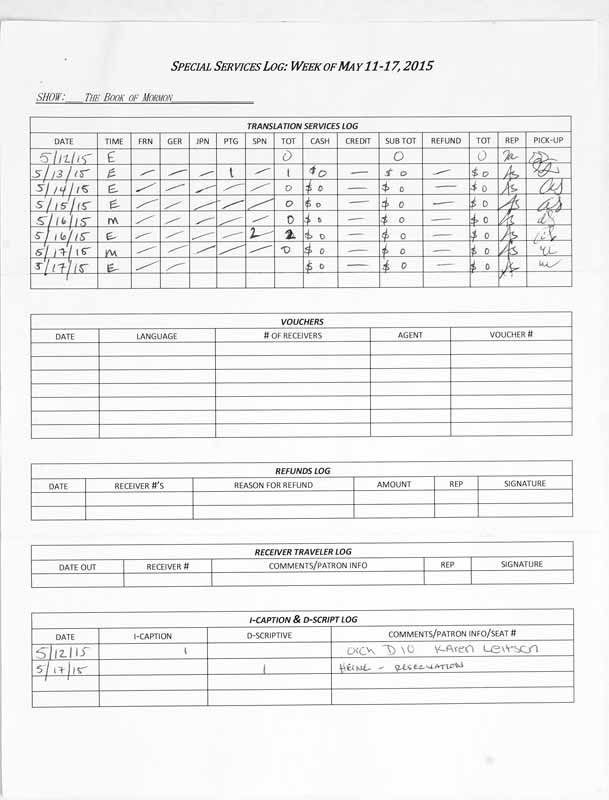 SPECIAL SERVICES LOG: WEEK OF MAY 11-17, 2015
SHOW: THE BOOK OF MORMON
TRANSLATION SERVICES LOG
DATE TIME FRN GER JPN PTG SPN TOT CASH CREDIT SUB TOT REFUND TOT REP PICK-UP
5/12/15 E 0 0 0
5/13/15 E — — — 1 — 1 $0 — $0 — $0 AS
5/14/15 E — — — — — 0 $0 — $0 — $0 AS
5/15/15 E — — — — — 0 $0 — $0 — $0 AS
5/16/15 M — — — — — 0 $0 — $0 — $0 AS
5/16/15 E — — — — 2 2 $0 — $0 — $0 AS
5/17/15 M — — — — — 0 $0 — $0 — $0 AS
5/17/15 E — — $0 — $0 — $0 AS
VOUCHERS
DATE LANGUAGE # OF RECEIVERS AGENT VOUCHER #
REFUNDS LOG
DATE RECEIVER #'S REASON FOR REFUND AMOUNT REP SIGNATURE
RECEIVER TRAVELER LOG
DATE OUT RECEIVER # COMMENTS/PATRON INFO REP SIGNATURE
I-CAPTION & D-SCRIPT LOG
DATE I-CAPTION D-SCRIPTIVE COMMENTS/PATRON INFO/SEAT #
5/12/15 1 Orch D10 Karen Leitson
5/17/15 1 HEINE - RESERVATION